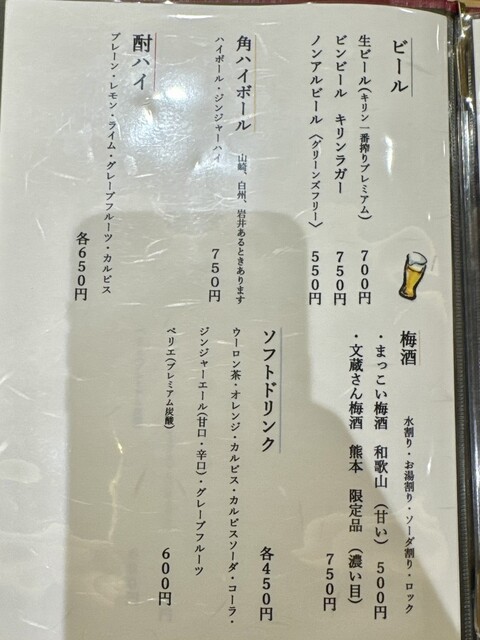 ビール
生ビール(キリン一番搾りプレミアム) 700円
ビンビール キリンラガー 750円
ノンアルビール〈グリーンズフリー〉 550円
角ハイボール 山崎、白州、岩井あるときあります
ハイボール・ジンジャーハイ 750円
酎ハイ
プレーン・レモン・ライム・グレープフルーツ・カルピス 各650円
梅酒 水割り・お湯割り・ソーダ割り・ロック
・まっこい梅酒 和歌山 (甘い) 500円
・文蔵さん梅酒 熊本 限定品 (濃い目) 750円
ソフトドリンク
ウーロン茶・オレンジ・カルピス・カルピスソーダ・コーラ・
ジンジャーエール(甘口・辛口)・グレープフルーツ 各450円
ペリエ(プレミアム炭酸) 600円